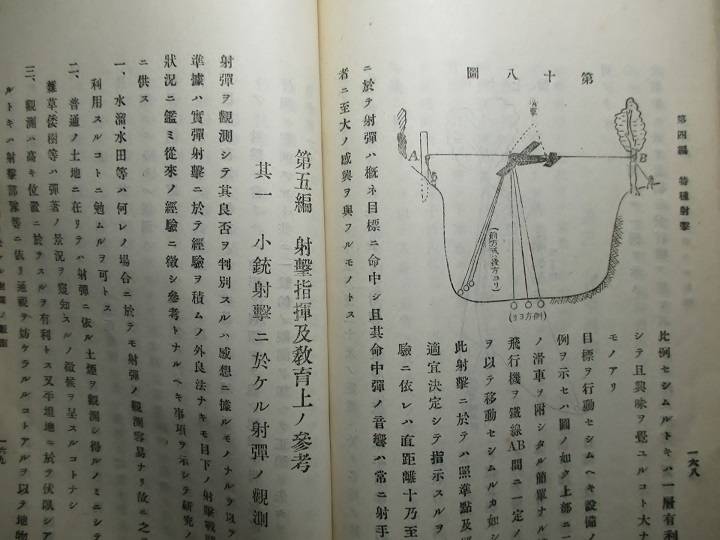 第四編 特種射擊
一六八
第十八圖
滑車
A
B
(前方又ハ後方ヨリ)
(側方ヨリ)
比例セシムルトキハ一層有利
シテ且興味ヲ覺ユルコト大ナ
モノアリ
目標ヲ行動セシムヘキ設備ノ
例ヲ示セハ圖ノ如ク上部ニ一
ノ滑車ヲ附シタル簡單ナル
飛行機ヲ鐵線AB間ニ一定ノ
ヲ以テ移動セシムルカ如シ
此射擊ニ於テハ照準點及
適宜決定シテ指示スルヲ
驗ニ依レハ直距離十乃至
ニ於テ射彈ハ概ネ目標ニ命中シ且其命中彈ノ音響ハ常ニ射手
者ニ至大ノ感興ヲ與フルモノトス
第五編 射擊指揮及敎育上ノ參考
其一 小銃射擊ニ於ケル射彈ノ觀測
射彈ヲ觀測シテ其良否ヲ判別スルハ感想ニ據ルモノナルヲ以テ
準據ハ實彈射擊ニ於テ經驗ヲ積ムノ外良法ナキモ目下ノ射擊戰
狀況ニ鑑ミ從來ノ經驗ニ徵シ參考トナルヘキ事項ヲ示シテ研究ノ
ニ供ス
一、水溜水田等ハ何レノ場合ニ於テモ射彈ノ觀測容易ナリ故ニ之
利用スルコトニ勉ムルヲ可トス
二、普通ノ土地ニ在リテハ射彈ニ依ル土煙ヲ觀測シ得ルノミニシテ
雜草倭樹等ハ彈著ノ景況ヲ窺知スルノ徵候ヲ呈スルコトナシ
三、觀測ハ高キ位置ニ於テスルヲ有利トス又平坦地ニ於テ伏臥シア
ルトキハ射擊部隊等ニ依リ通視ヲ妨ケラルルコトアルヲ以テ地物
一六九